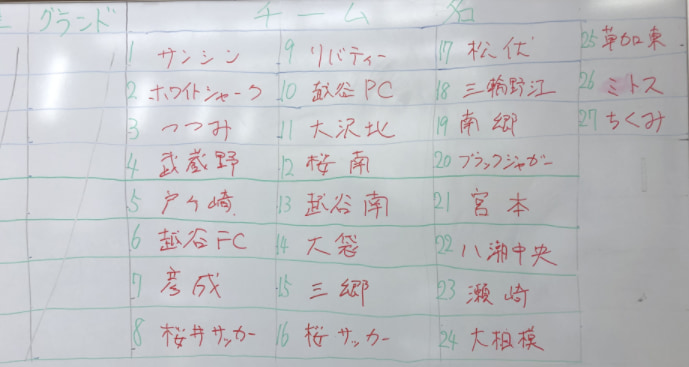 グランド チーム名
1 サンシン
2 ホワイトシャーク
3 つつみ
4 武蔵野
5 戸ヶ崎
6 越谷FC
7 彦成
8 桜井サッカー
9 リバティー
10 越谷PC
11 大沢北
12 桜南
13 越谷南
14 大袋
15 三郷
16 桜サッカー
17 松伏
18 三輪野江
19 南郷
20 ブラックジャガー
21 宮本
22 八潮中央
23 瀬崎
24 大相模
25 草加東
26 ミトス
27 ちくみ